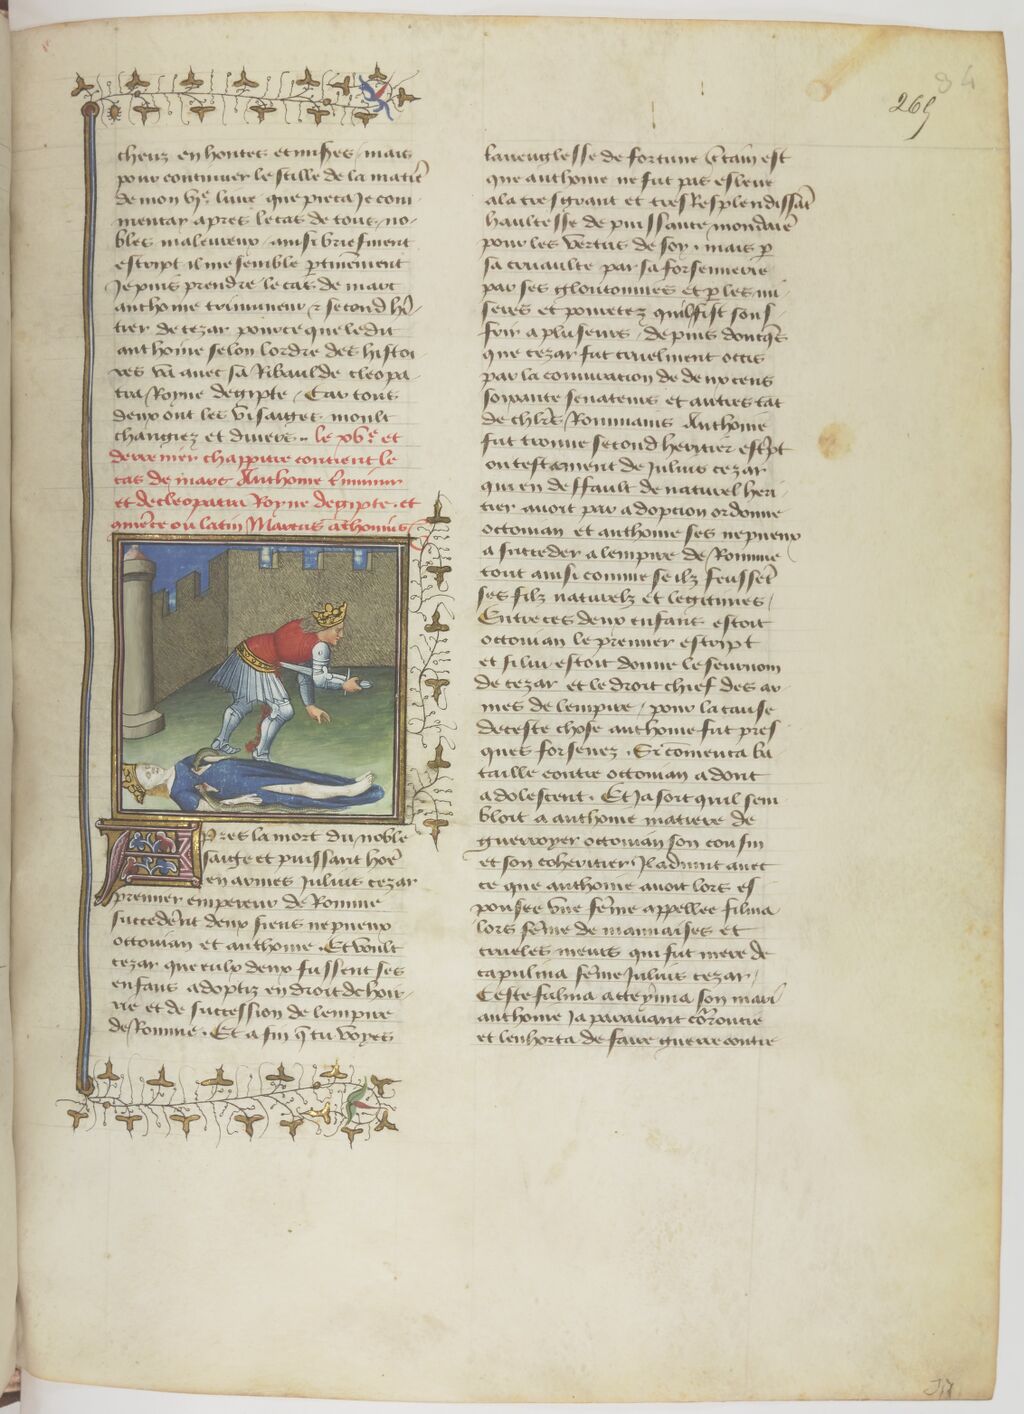 269
84
cheuz en hontes et mises / mais
pour continuer le stille de la matie͛
de mon vjͤ. liure que pieca Je com-
mencay apres le cas de tous no-
bles maleureux ainsi briefment
escript il me semble p̲tinēment
Je puis prendre le cas de marc
anthoine triumueur ⁊ second he͛-
tier de cezar pource que ledit
anthoine selon lordre des histoi-
res vā auec sā Ribaulde cleopa-
tra Royne degipte / Car tous
deux ont les visaiges moult
changiez et diuers .. le xvͤ. et
derrenier chappitre contient le
cas de marc Anthoine
et de cleopatra Royne degipte . et
ou latin Marcus āthonius
Apres la mort du noble
saige et puissant hoē
en armes Julius cezar
premier empereur de Romme
succederēt deux siens nepueux
octouian et anthoine . Et voult
cezar que eulx deux fussent ses
enfans adoptiz en droit dehoir-
rie et de succession de lempire
de Romme . Et afin q̄ tu voyes
laueuglesse de fortune Ctain est
que anthoine ne fut pas esleue
a la tresgrant et tres Resplendissāt
haultesse de puissance mondaīe
pour les vertus de soy . mais p̲
sa cruaulte par sa forsennerie
par ses gloutonnies et p̲ les mi-
seres et pouretez quil fist souf-
frir a pluseurs . depuis doncq̄s
que cezar fut cruelment occis
par la coniuracion de deux cens
soixante senateurs et autres tāt
de chlr̄s Rommains Anthoine
fut trouue second heritier esc̄pt
ou testament de Julius cezar
qui en deffault de naturel heri-
tier auoit par adopcion ordonne
octouian et anthoine ses nepueux
a succeder a lempire de Romme
tout ainsi comme se ilz feussēt
ses filz naturelz et legitimes /
Entre ces deux enfans estoit
octouian le premier escript
et si lui estoit donne le seurnom
de cezar et le droit chief des ar-
mes de lempire / pour la cause
de ceste chose anthoine fut pres
ques forsenez . Si comenca ba
taille contre octouian adont
adolescent . Et Ja soit quil sem
bloit a anthoine matiere de
guerroyer octouian son cousin
et son coheritier Il aduint auec
ce que anthoine auoit lors es
pousee vne fēme appellee fuluia
lors fēme de mauuaises et
crueles meurs qui fut mere de
capulina fēme Julius cezar /
Ceste fuluia son mari
anthoine Ja parauant
et lenhorta de faire guerre contre